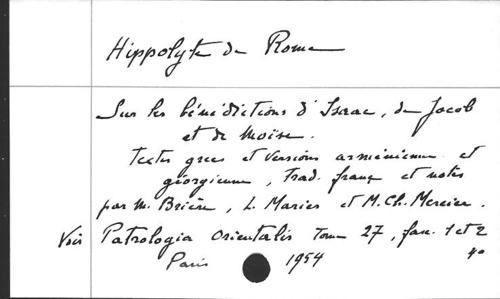 Hippolyte de Rome
Sur les bénédictions d'Isaac, de Jacob
et de Moïse.
Textes grec et versions arménienne et
géorgienne, Trad. franç et notes
par M. Brière, L. Mariès et M.Ch. Mercier.
Voir Patrologia Orientalis Tome 27, fasc. 1 et 2
Paris 1954 4o